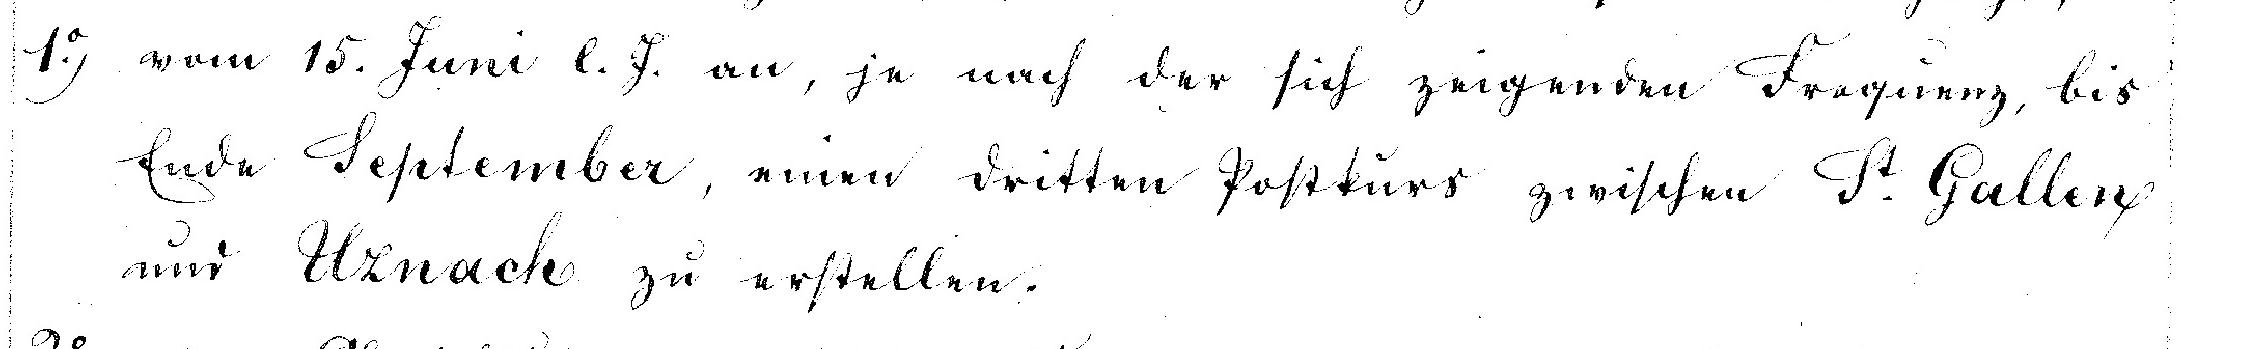 1.o) vom 15. Juni l. J. an, je nach der sich zeigenden Frequenz, bis
Ende September, einen dritten Postkurs zwischen St. Gallen
und Uznach zu erstellen.